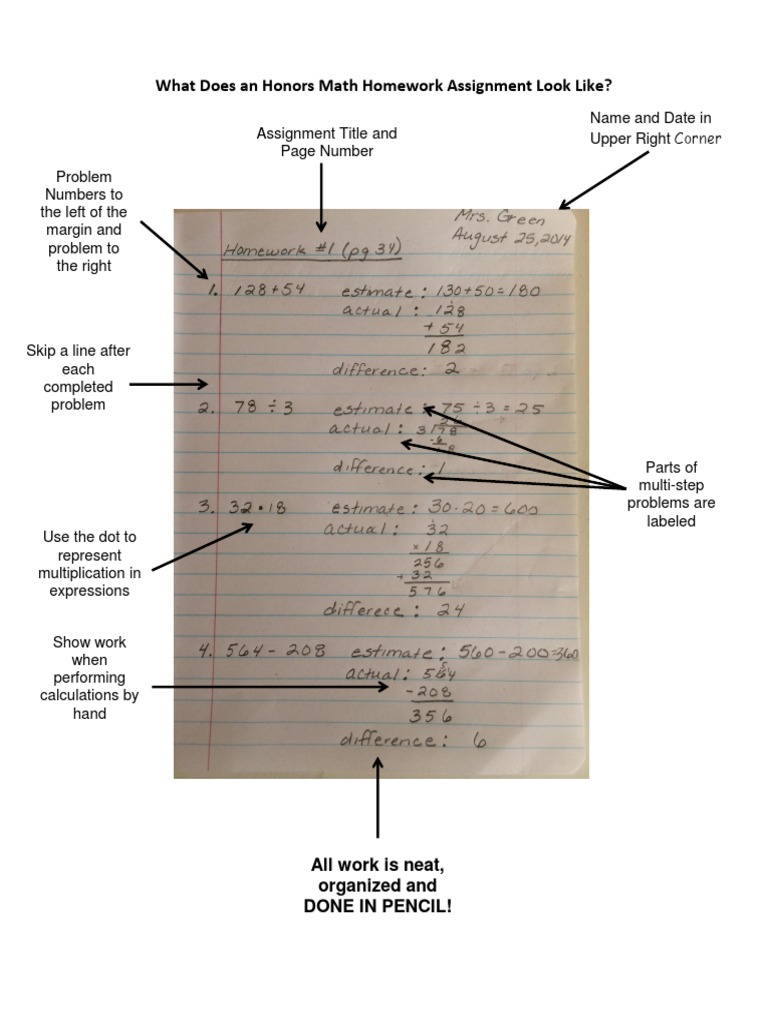 What Does an Honors Math Homework Assignment Look Like?
Name and Date in
Upper Right Corner
Assignment Title and
Page Number
Problem
Numbers to
the left of the
margin and
problem to
the right
Mrs. Green
August 25, 2014
Homework #1 (pg 34)
1. 128 + 54 estimate : 130 + 50 = 180
actual : 128
+ 54
182
difference: 2
Skip a line after
each
completed
problem
2. 78 ÷ 3 estimate : 75 ÷ 3 = 25
actual : 3)78
-6
18
difference: 1
Parts of
multi-step
problems are
labeled
3. 32 • 18 estimate : 30 · 20 = 600
actual : 32
x 18
256
+ 32
576
differece : 24
Use the dot to
represent
multiplication in
expressions
4. 564 - 208 estimate : 560 - 200 = 360
actual : 564
- 208
356
difference : 6
Show work
when
performing
calculations by
hand
All work is neat,
organized and
DONE IN PENCIL!